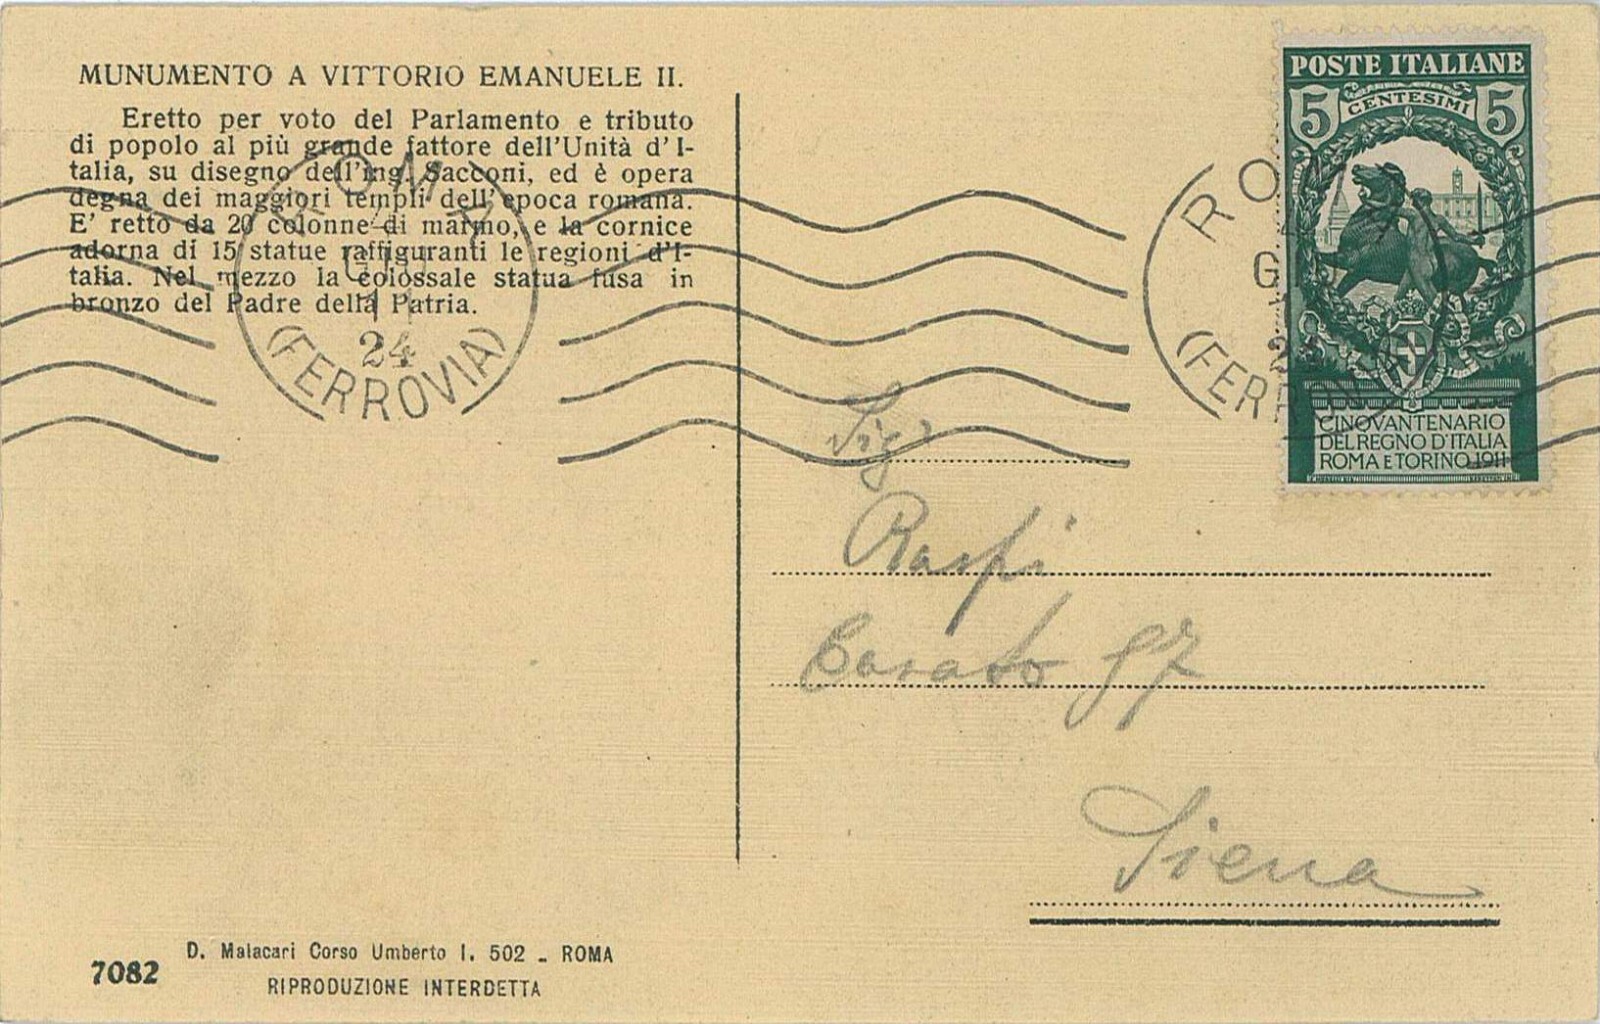 MUNUMENTO A VITTORIO EMANUELE II.
Eretto per voto del Parlamento e tributo
di popolo al più grande fattore dell'Unità d'I-
talia, su disegno dell'ing. Sacconi, ed è opera
degna dei maggiori templi dell'epoca romana.
E' retto da 20 colonne di marmo, e la cornice
adorna di 15 statue raffiguranti le regioni d'I-
talia. Nel mezzo la colossale statua fusa in
bronzo del Padre della Patria.
ROMA
11
24
(FERROVIA)
ROMA
(FERROVIA)
POSTE ITALIANE
5 CENTESIMI 5
CINQVANTENARIO
DEL REGNO D'ITALIA
ROMA E TORINO 1911
Sig
Raspi
Casato 97
Siena
7082
D. Malacari Corso Umberto I. 502 - ROMA
RIPRODUZIONE INTERDETTA